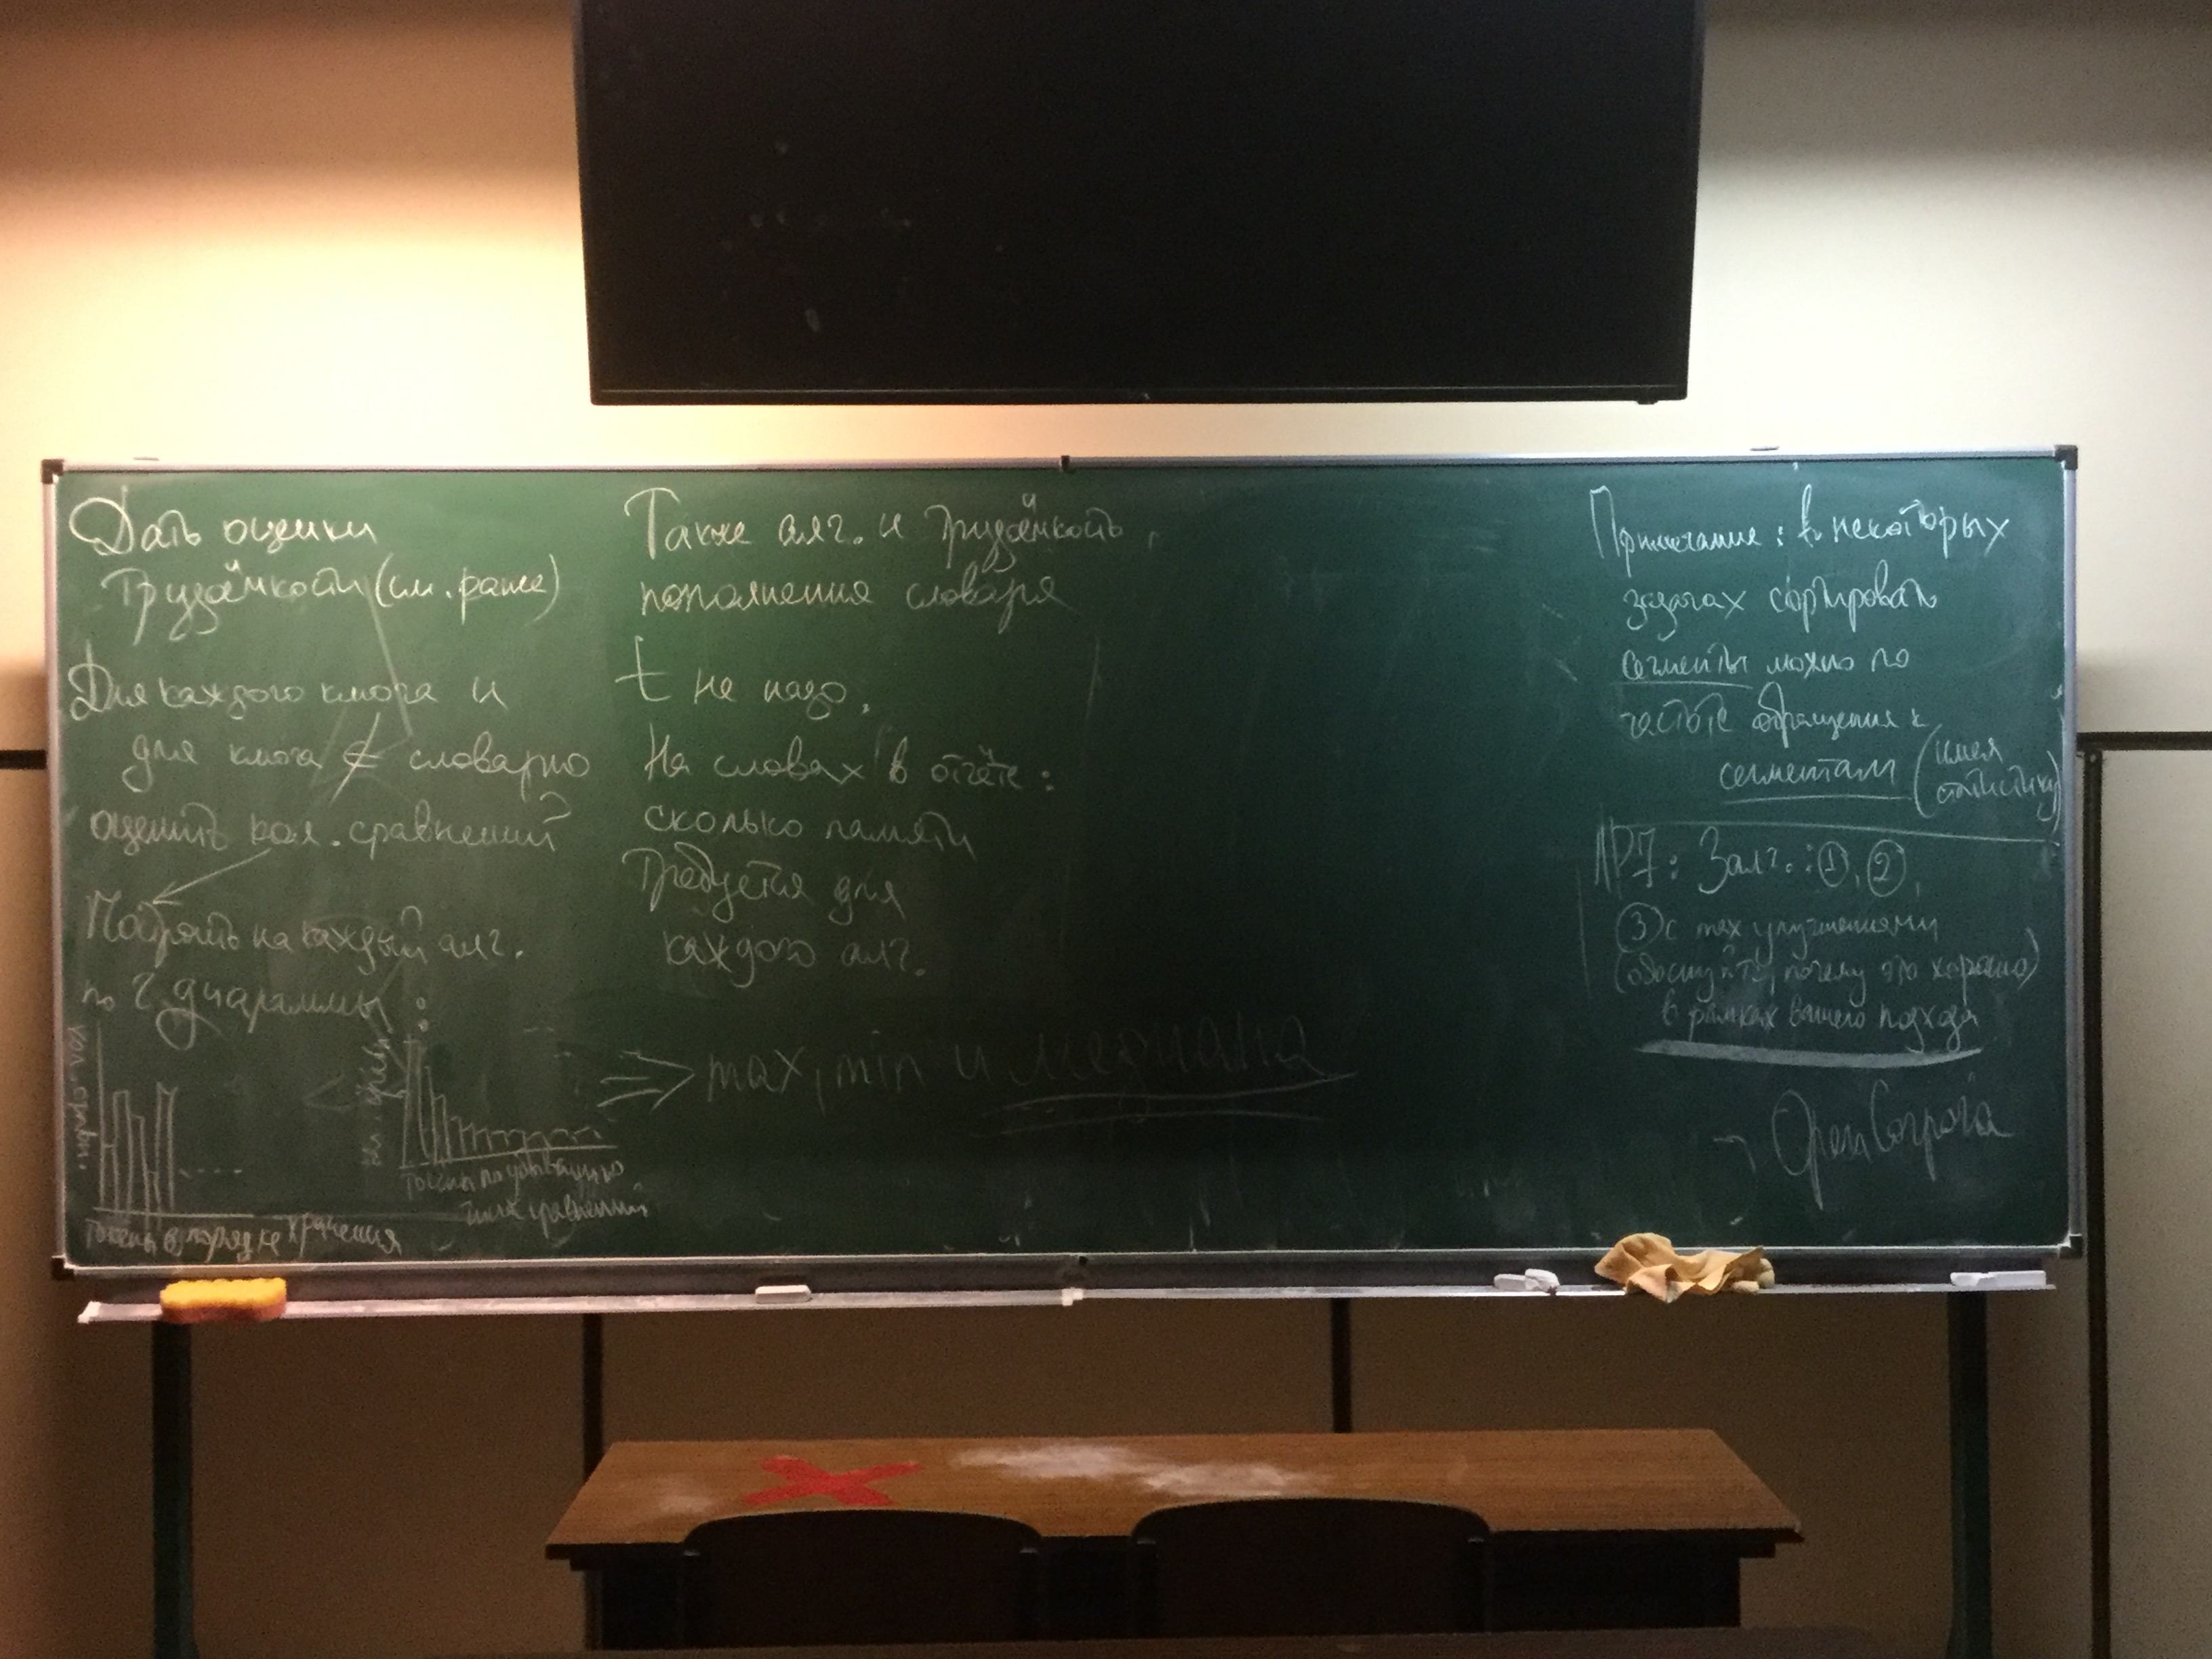 Дать оценки
трудоёмкости (см. ранее)
Для каждого ключа и
для ключа ∉ словарю
оценить кол. сравнений
Построить на каждый алг.
по 2 диаграммы:
кол. сравн.
Токены в порядке хранения
кол. сравн.
Токены по убыванию
числа сравнений
Также алг. и трудоёмкость
пополнения словаря
t не надо.
На словах в отчёте:
сколько памяти
требуется для
каждого алг.
=> max, min и медиана
Примечание: в некоторых
задачах сортировать
сегменты можно по
частоте обращения к
сегментам (имея
статистику)
ЛР7: 3 алг.: ①, ②,
③ с max улучшениями
(обоснуйте, почему это хорошо)
в рамках вашего подхода
OpenCorpora